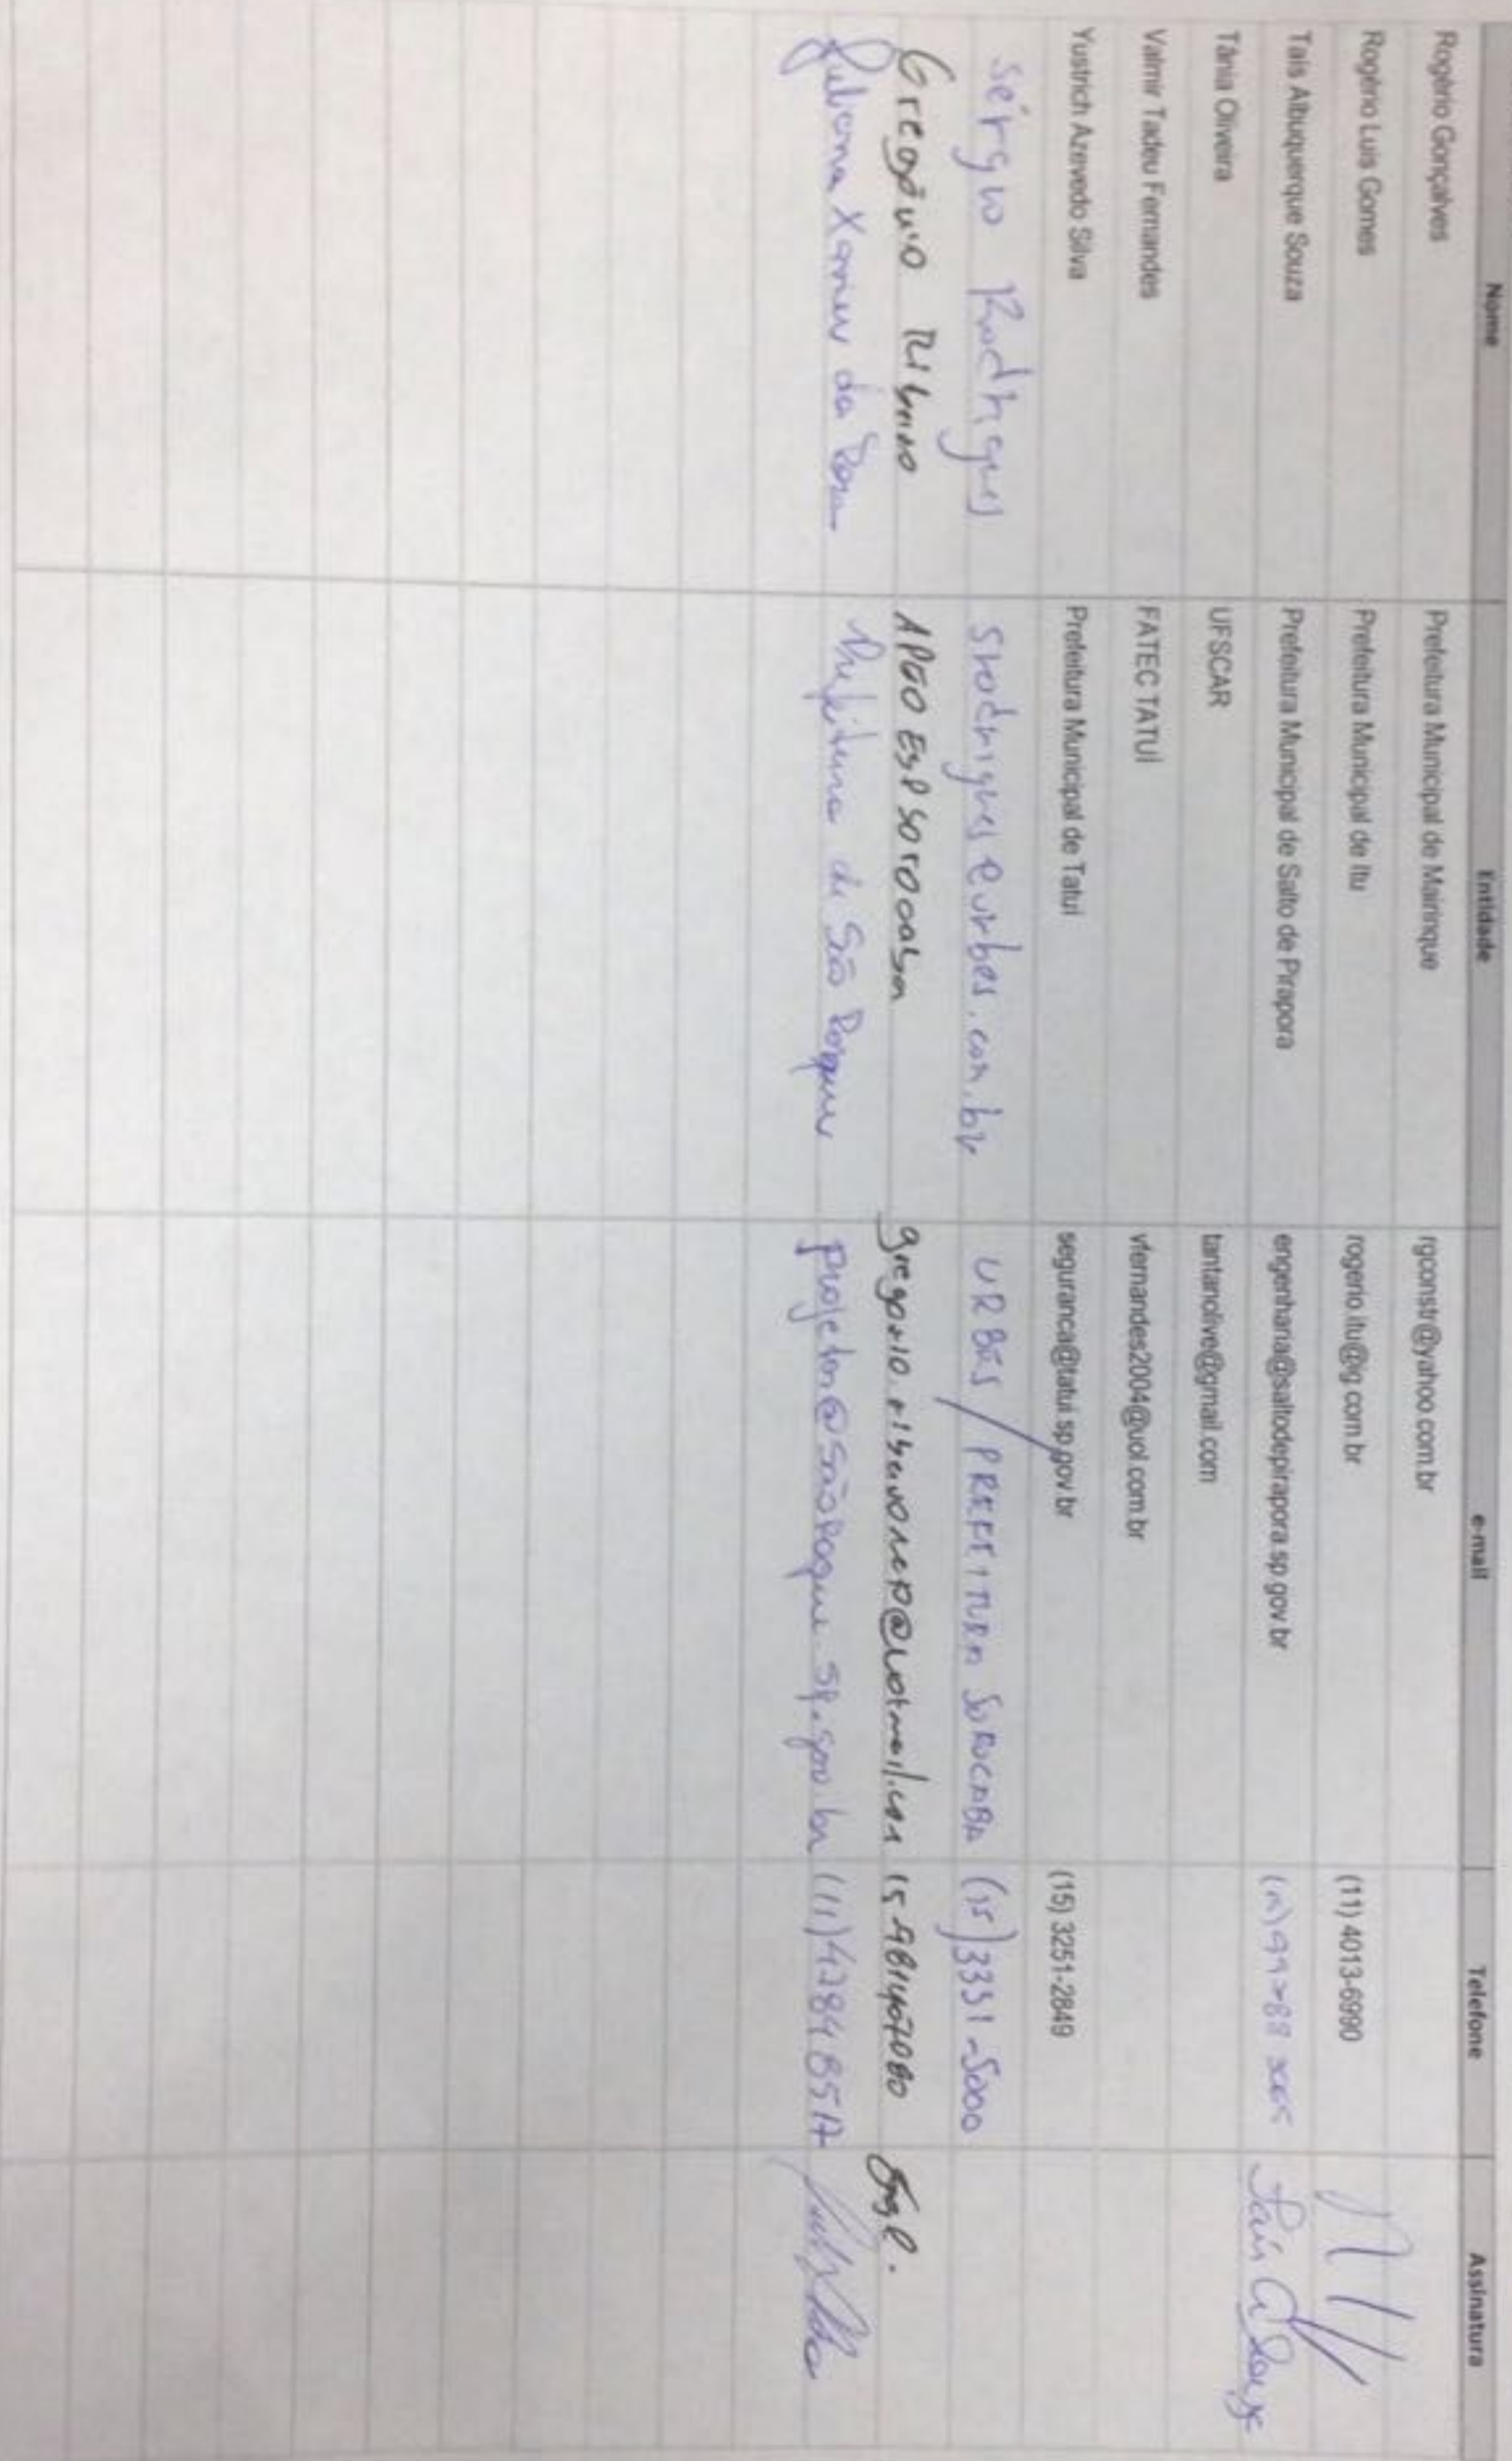 Nome Entidade e-mail Telefone Assinatura
Rogério Gonçalves Prefeitura Municipal de Mairinque rgconstr@yahoo.com.br
Rogério Luis Gomes Prefeitura Municipal de Itu rogerio.itu@ig.com.br (11) 4013-6990
Taís Albuquerque Souza Prefeitura Municipal de Salto de Pirapora engenharia@saltodepirapora.sp.gov.br
Tânia Oliveira UFSCAR tantanolive@gmail.com
Valmir Tadeu Fernandes FATEC TATUÍ vfernandes2004@uol.com.br
Yustrich Azevedo Silva Prefeitura Municipal de Tatuí seguranca@tatui.sp.gov.br (15) 3251-2849
Sérgio Rodrigues URBES / PREFEITURA SOROCABA (15) 3331-5000
Gregório APGO
Juliana Xavier da Rosa Prefeitura de São Roque